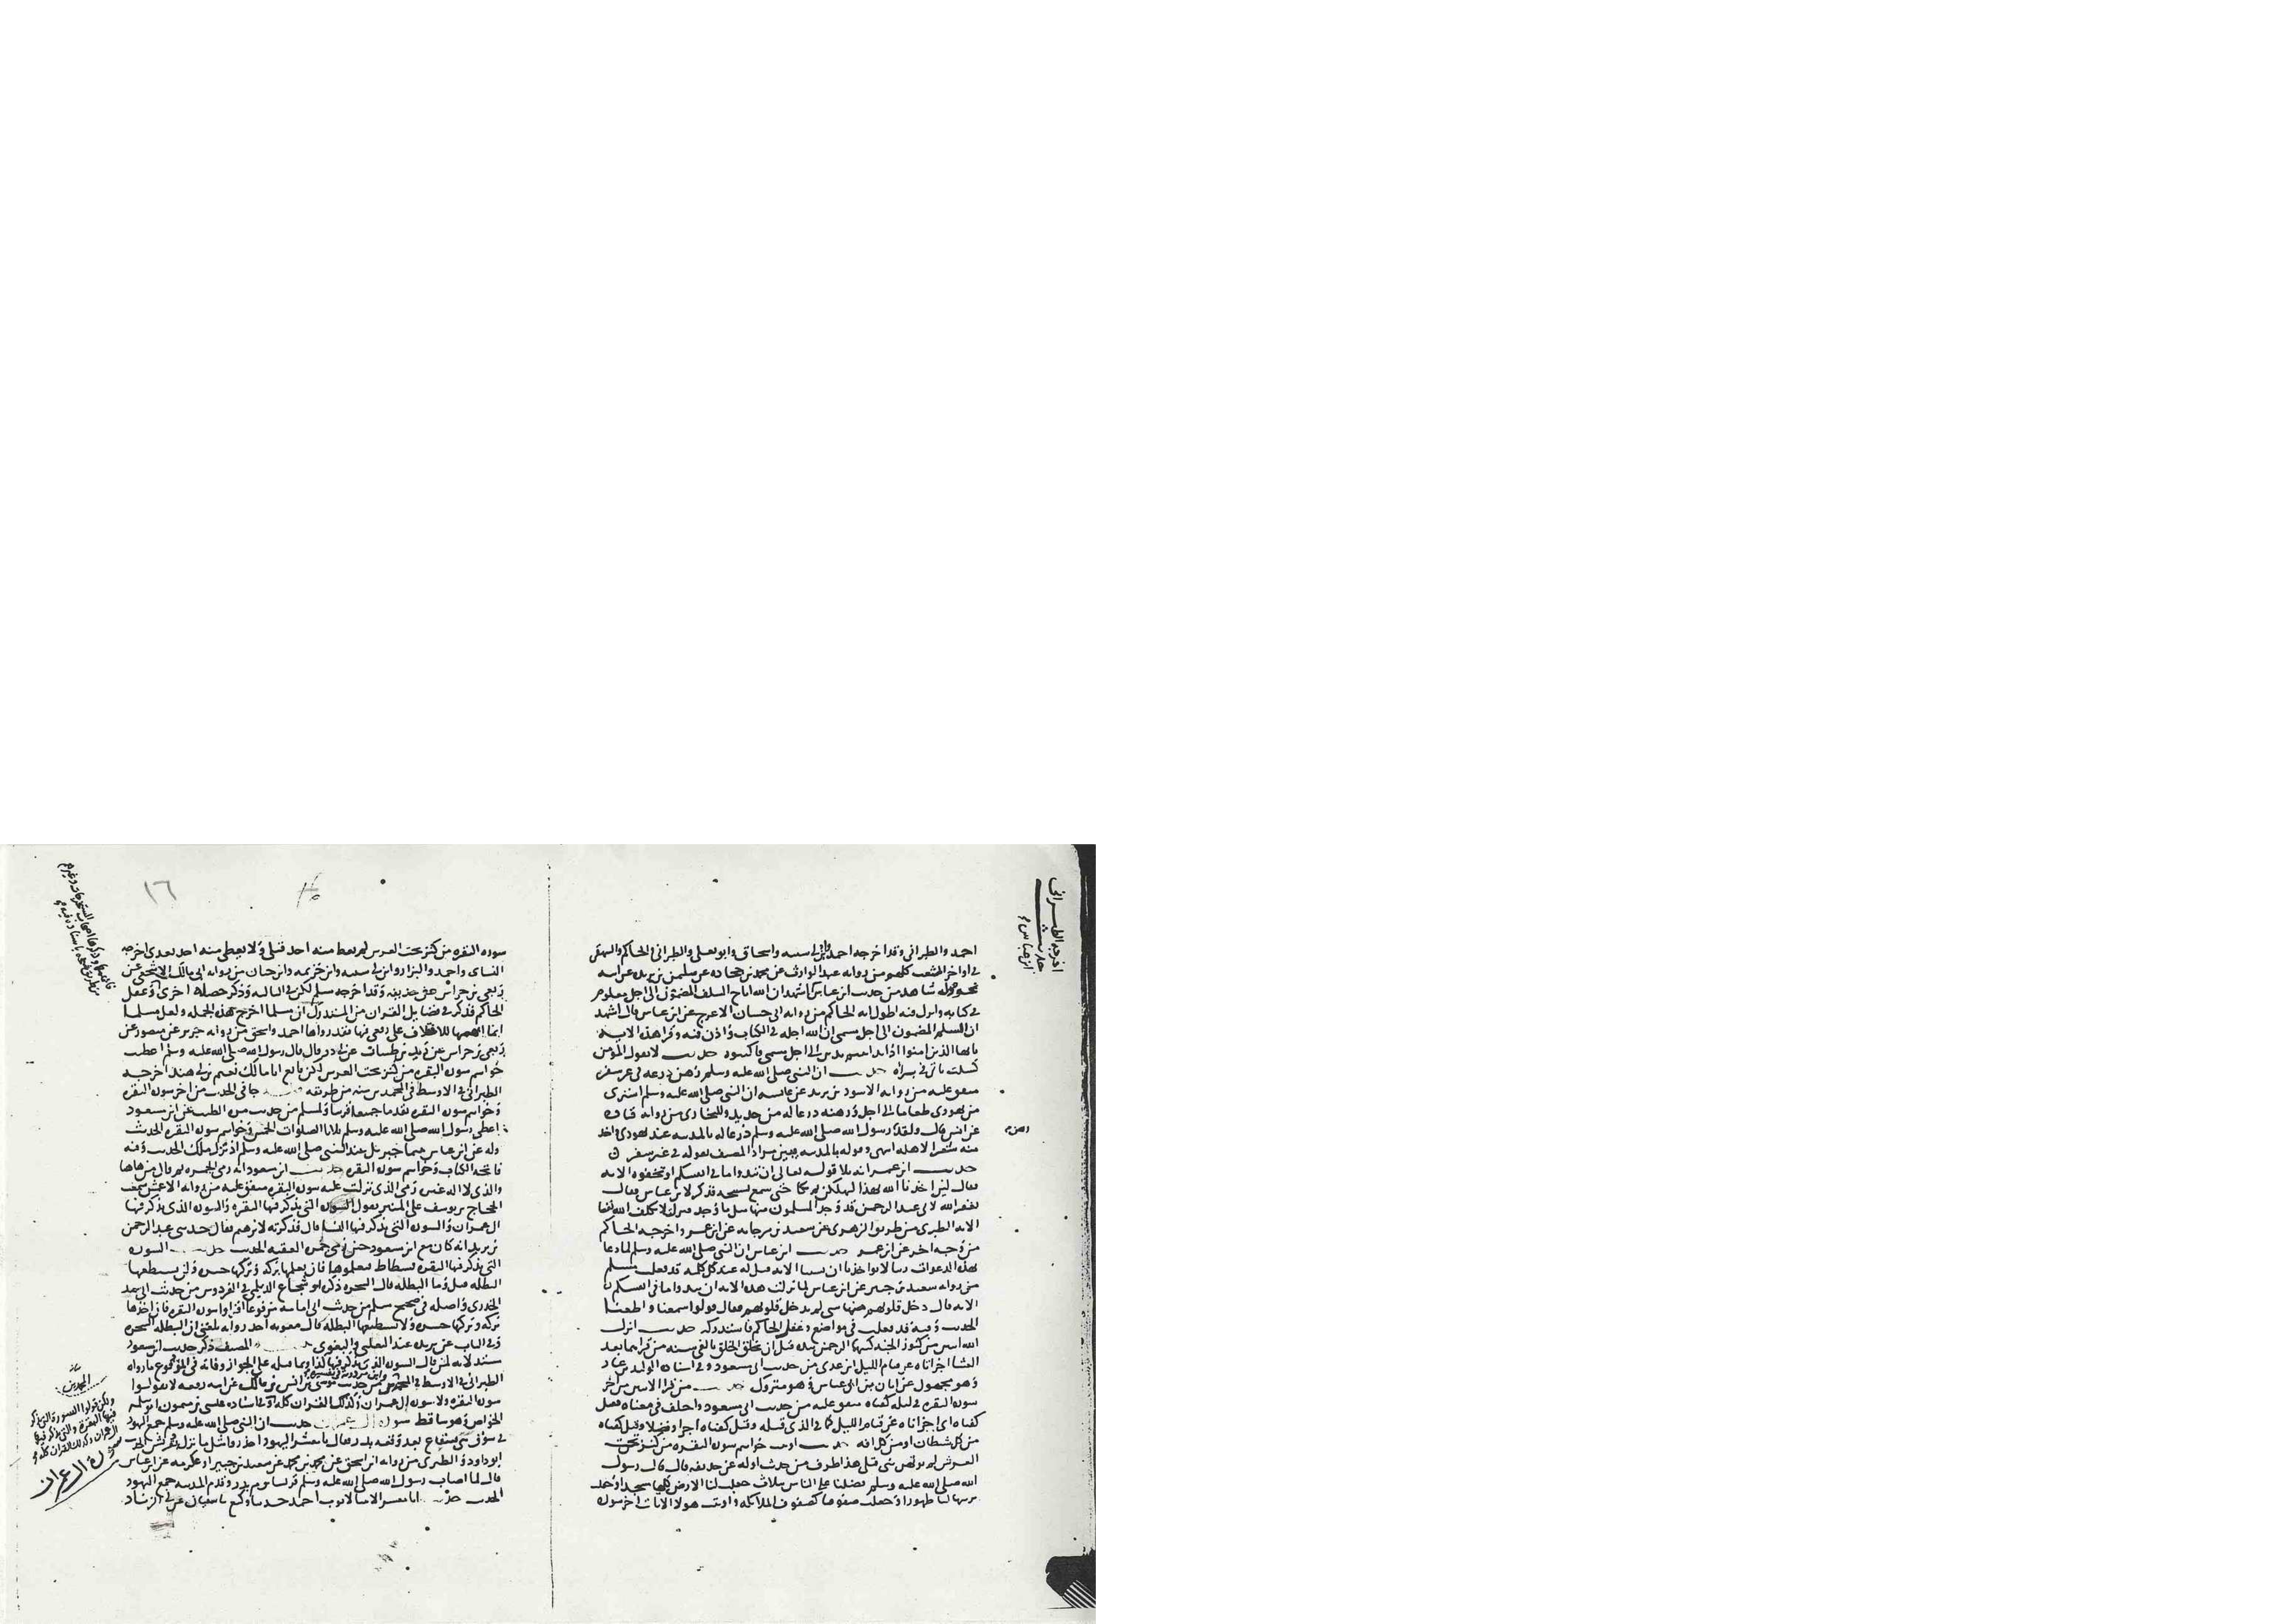 احمد والطبرانى وقد اخرجه احمد وابن ابى سيبه واسحاق وابو يعلى والطبرانى والحاكم والبيهقى
فى اواخر الشعب كلهم من روايه عبد الوارث عن محمد بن جحاده عن سليمن بن بريده عن ابيه
نحوه وله شاهد من حديث ابن عباس اشهد ان الله اباح السلف المضمون الى اجل معلوم
فى كتابه وانزل فيه اطول ايه الحاكم من روايه ابى حسان الاعرج عن ابن عباس قال اشهد
ان السلم المضمون الى اجل مسمى ان الله اجله فى الكتاب واذن فيه وقرا هذه الايه
يايها الذين امنوا اذا تداينتم بدين الى اجل مسمى فاكتبوه حديث لا يقول المؤمن
كسلت ياتى فى براه حديث ان النبى صلى الله عليه وسلم رهن درعه فى غير سفر
متفق عليه من روايه الاسود بن يزيد عن عايشه ان النبى صلى الله عليه وسلم اشترى
من يهودى طعاما الى اجل ورهنه درعا له من حديد وللبخارى من روايه قتاده
عن انس قال ولقد رسول الله صلى الله عليه وسلم درعا له بالمدينه عند يهودى واخذ
رهن
منه شعيرا لاهله انتهى وقوله بالمدينه يبين مراد المصنف بقوله فى غير سفر
حديث ابن عمر انه تلا قوله تعالى ان تبدوا ما فى انفسكم او تخفوه الايه
فقال لين اخذنا الله بهذا لنهلكن ثم بكا حتى سمع نشيجه فذكر لابن عباس فقال
يغفر الله لابى عبد الرحمن قد وجد المسلمون منها مثل ما وجد فنزل لا يكلف الله نفسا
الايه الطبرى من طريق الزهرى عن سعيد بن مرجانه عن ابن عمر واخرجه الحاكم
من وجه اخر عن ابن عمر حديث ابن عباس ان النبى صلى الله عليه وسلم لما دعا
بهذه الدعوات ربنا لا تواخذنا ان نسينا الايه قيل له عند كل كلمه قد فعلت مسلم
من روايه سعيد بن جبير عن ابن عباس لما نزلت هذه الايه ان تبدوا ما فى انفسكم
الايه قال دخل قلوبهم منها شى لم يدخل قلوبهم فقال قولوا سمعنا واطعنا
الحديث وفيه قد فعلت فى مواضع وغفل الحاكم فاستدركه حديث انزل
الله ايتين من كنوز الجنه كتبهما الرحمن بيده قبل ان يخلق الخلق بالفى سنه من قراهما بعد
العشا اجزاتاه عن قيام الليل ابن عدى من حديث ابى مسعود وفى اسناده الوليد بن عباد
وهو مجهول عن ابان بن ابى عياش وهو متروك حديث من قرا الايتين من اخر
سوره البقره فى ليله كفتاه متفق عليه من حديث ابى مسعود واختلف فى معناه فقيل
كفتاه اى اجزاتاه عن قيام الليل كما فى الذى قبله وقيل كفتاه اجرا وفضلا وقيل كفتاه
من كل شيطان او من كل افه حديث اوتيت خواتيم سوره البقره من كنز تحت
العرش لم يوتهن نبى قبلى هذا طرف من حديث اوله عن حذيفه قال قال رسول
الله صلى الله عليه وسلم فضلنا على الناس بثلاث جعلت لنا الارض كلها مسجدا وجعلت
تربتها لنا طهورا وجعلت صفوفنا كصفوف الملايكه واوتيت هولا الايات اخر سوره
اخرجه الطبرانى
حديث
ابن عباس
١٦
سوره البقره من كنز تحت العرش لم يعط منه احد قبلى ولا يعطى منه احد بعدى اخرجه
النسائى واحمد والبزار وابن ابى شيبه وابن خزيمه وابن حبان من روايه ابى مالك الاشجعى عن
ربعى بن حراش عن حذيفه وقد اخرجه مسلم لكن قال الثالثه وذكر خصله اخرى وغفل
الحاكم فذكر فى فضايل القران من المستدرك ان مسلما اخرج هذه الجمله ولعل مسلما
انما ابهمها للاختلاف على ربعى فيها فقد رواها احمد واسحق من روايه جرير عن منصور عن
ربعى بن حراش عن زيد بن ظبيان عن ابى ذر قال قال رسول الله صلى الله عليه وسلم اعطيت
خواتيم سوره البقره من كنز تحت العرش لكن تابع ابا مالك نعيم بن ابى هند اخرجه
الطبرانى فى الاوسط فى المحمدين من طريقه جا فى الحديث من اخر سوره البقره
وخواتيم سوره البقره تقدما جميعا قريبا ولمسلم من حديث مره الطيب عن ابن مسعود
اعطى رسول الله صلى الله عليه وسلم ثلاثا الصلوات الخمس وخواتيم سوره البقره الحديث
وله عن ابن عباس بينما جبريل عند النبى صلى الله عليه وسلم اذ نزل ملك الحديث وفيه
فاتحه الكتاب وخواتيم سوره البقره حديث ابن مسعود انه رمى الجمره ثم قال من هاهنا
والذى لا اله غيره رمى الذى نزلت عليه سوره البقره متفق عليه من روايه الاعمش سمعت
الحجاج بن يوسف على المنبر يقول السوره التى يذكر فيها البقره والسوره الذى يذكر فيها
ال عمران والسوره التى يذكر فيها النسا قال فذكرته لابرهيم فقال حدثنى عبد الرحمن
بن يزيد انه كان مع ابن مسعود حين رمى جمره العقبه الحديث حديث السوره
التى يذكر فيها البقره فسطاط القران فتعلموها فان تعلمها بركه وتركها حسره ولن يستطيعها
البطله قيل وما البطله قال السحره ذكره ابو شجاع الديلمى فى الفردوس من حديث ابى سعيد
الخدرى واصله فى صحيح مسلم من حديث ابى امامه مرفوعا اقراوا سوره البقره فان اخذها
بركه وتركها حسره ولا تستطيعها البطله قال معويه احد رواته بلغنى ان البطله السحره
وفى الباب عن بريده عند الثعلبى والبغوى المصنف ذكر حديث ابن مسعود
الطبرانى فى الاوسط من حديث موسى بن انس بن مالك عن ابيه رفعه لا تقولوا
سوره البقره ولا سوره ال عمران وكذلك القران كله وفى اسناده عيسى بن ميمون ابو سلمه
الخواص وهو ساقط سوره ال عمران حديث ان النبى صلى الله عليه وسلم جمع اليهود
فى سوق بنى قينقاع بعد وقعه بدر فقال يا معشر اليهود احذروا مثل ما نزل بقريش الحديث
ابو داود والطبرى من روايه ابن اسحق عن محمد بن ابى محمد عن سعيد بن جبير او عكرمه عن ابن عباس
قال لما اصاب رسول الله صلى الله عليه وسلم قريشا يوم بدر وقدم المدينه جمع اليهود
الحديث
المحمدين
ولكن قولوا السورة التى يذكر
فيها البقره والتى يذكر فيها
ال عمران وكذلك القران كله
سوره ال عمران